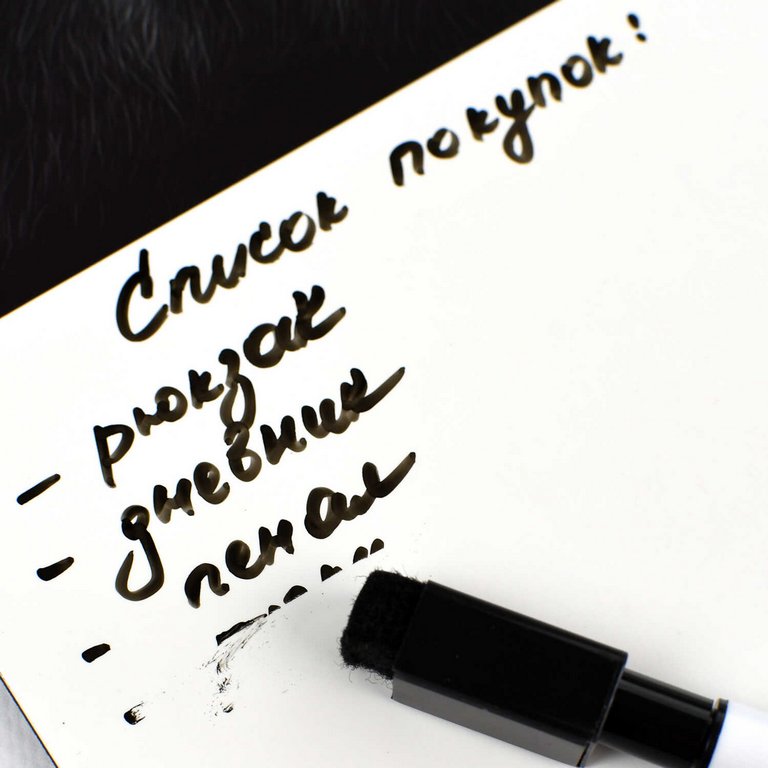 Список покупок:
- рюкзак
- дневник
- пенал
-